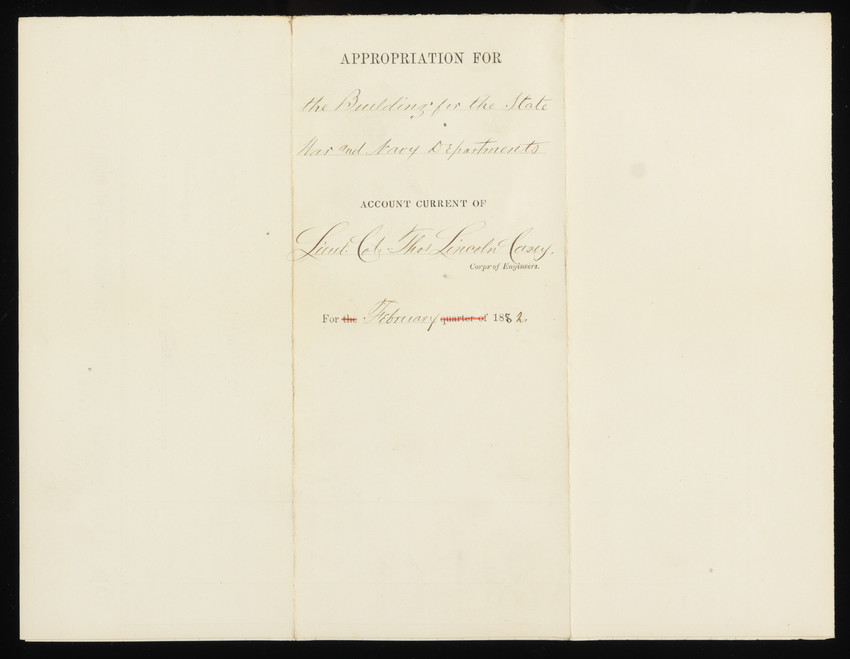 APPROPRIATION FOR
the Building for the State
War and Navy Departments
ACCOUNT CURRENT OF
Lieut. Col. Thos Lincoln Casey,
Corps of Engineers.
For the February quarter of 1882.